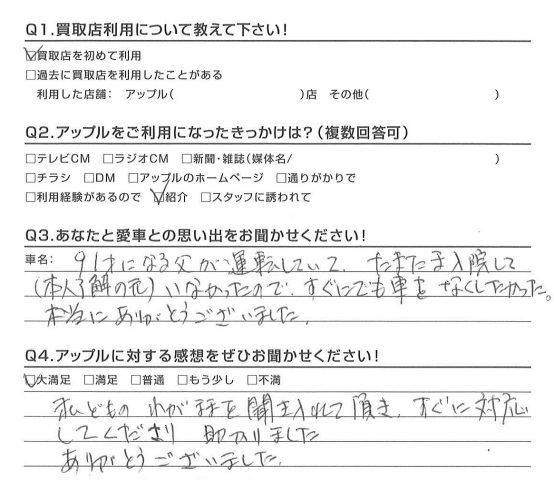 Q1.買取店利用について教えて下さい!
☑買取店を初めて利用
□過去に買取店を利用したことがある
利用した店舗: アップル( )店 その他( )
Q2.アップルをご利用になったきっかけは?(複数回答可)
□テレビCM □ラジオCM □新聞・雑誌(媒体名/ )
□チラシ □DM □アップルのホームページ □通りがかりで
□利用経験があるので ☑紹介 □スタッフに誘われて
Q3.あなたと愛車との思い出をお聞かせください!
車名: 91才になる父が運転していて、たまたま入院して
(本人了解の元)いなかったので、すぐにでも車をなくしたかった。
本当にありがとうございました。
Q4.アップルに対する感想をぜひお聞かせください!
☑大満足 □満足 □普通 □もう少し □不満
私どものわがままを聞き入れて頂き、すぐに対応
してくださり助かりました
ありがとうございました。